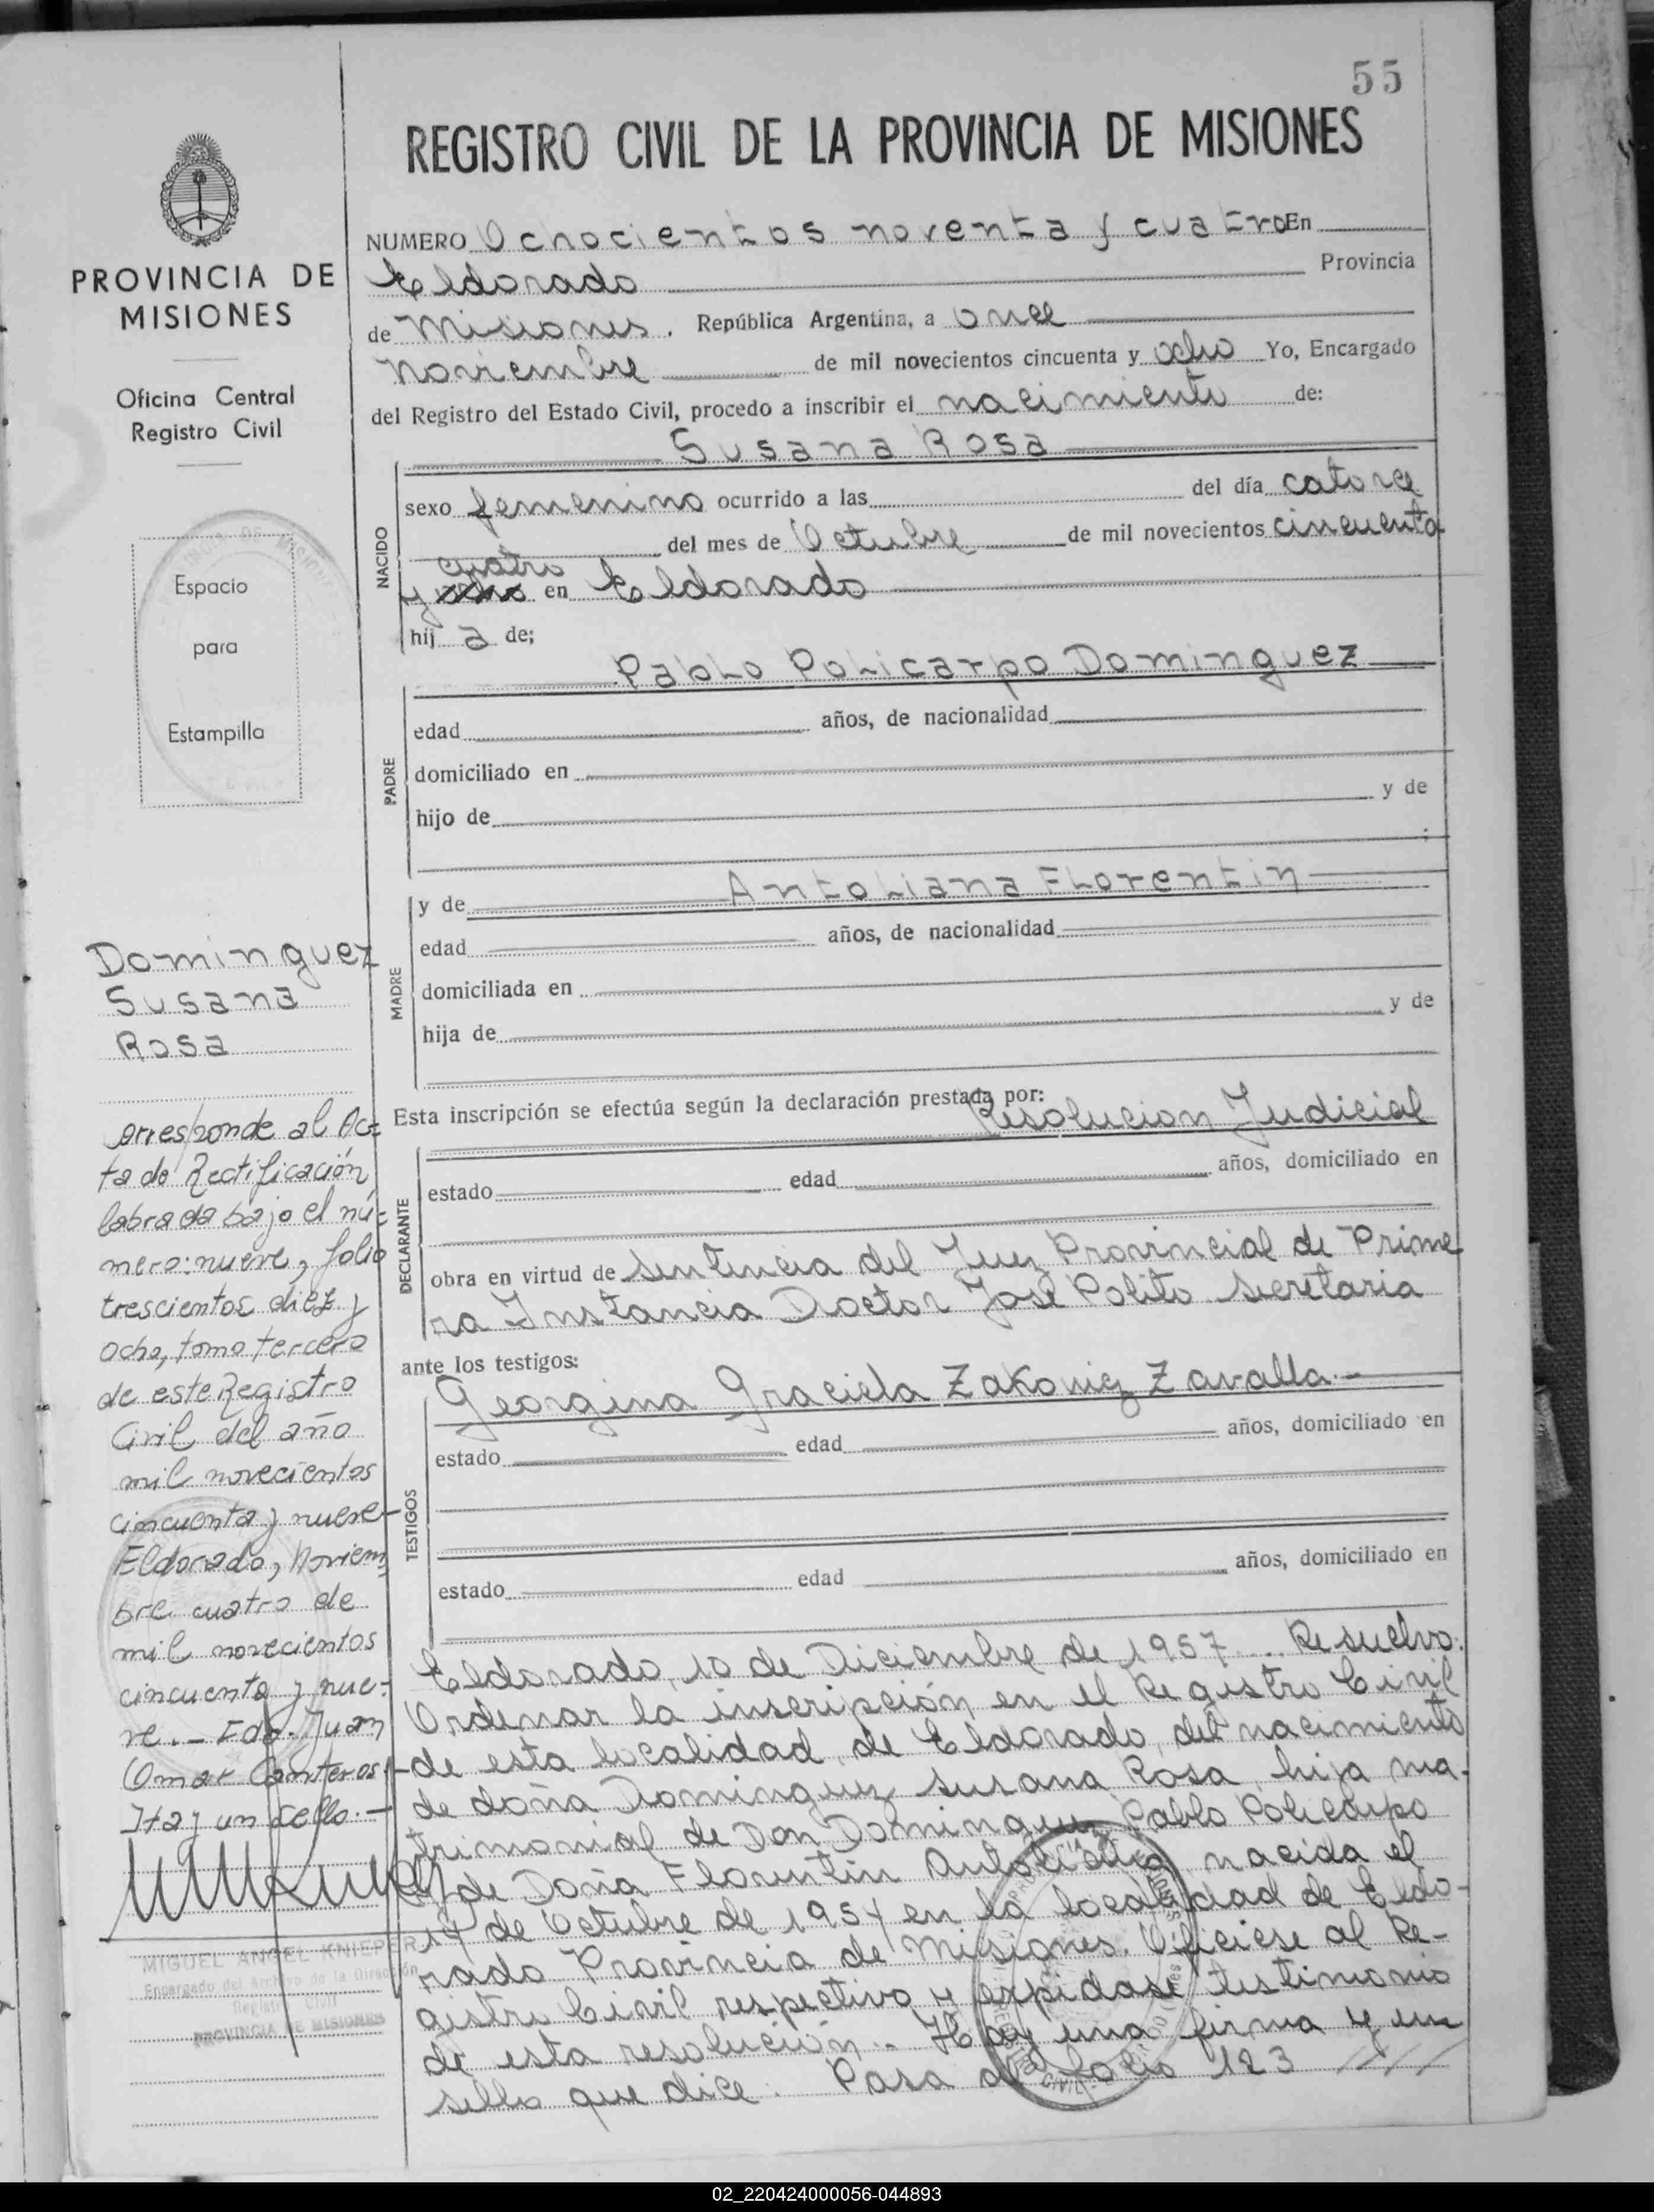 55
REGISTRO CIVIL DE LA PROVINCIA DE MISIONES
PROVINCIA DE
MISIONES
Oficina Central
Registro Civil
Espacio
para
Estampilla
NUMERO Ochocientos noventa y cuatro En
Eldorado Provincia
de Misiones. República Argentina, a once
noviembre de mil novecientos cincuenta y ocho Yo, Encargado
del Registro del Estado Civil, procedo a inscribir el nacimiento de:
Susana Rosa
NACIDO
sexo femenino ocurrido a las del día catorce
del mes de Octubre de mil novecientos cincuenta
cuatro
y ocho en Eldorado
hij a de;
Pablo Policarpo Dominguez
PADRE
edad años, de nacionalidad
domiciliado en
hijo de y de
;
y de Antoliana Florentin
MADRE
edad años, de nacionalidad
domiciliada en
hija de y de
Dominguez
Susana
Rosa
Esta inscripción se efectúa según la declaración prestada por:
Resolucion Judicial
DECLARANTE
estado edad años, domiciliado en
obra en virtud de sentencia del Juez Provincial de Prime
ra Instancia Doctor José Polito secretaria
ante los testigos:
Georgina Graciela Zakonig Zavalla.-
TESTIGOS
estado edad años, domiciliado en
estado edad años, domiciliado en
Eldorado, 10 de Diciembre de 1957... Resuelvo:
Ordenar la inscripción en el Registro Civil
de esta localidad, de Eldorado, del nacimiento
de doña Dominguez Susana Rosa, hija ma-
trimonial de Don Dominguez Pablo Policarpo
y de Doña Florentin Antoliana, nacida el
14 de Octubre de 1954 en la localidad de Eldo-
rado Provincia de Misiones. Ofíciese al Re-
gistro Civil respectivo y expidase testimonio
de esta resolución.- Hay una firma y un
sello que dice: Pasa al folio 123
orresponde al Ac-
ta de Rectificación
labrada bajo el nú-
mero: nueve, folio
trescientos diez y
ocho, tomo tercero
de este Registro
Civil del año
mil novecientos
cincuenta y nueve-
Eldorado, Noviem
bre cuatro de
mil novecientos
cincuenta y nue-
ve.- Fdo. Juan
Omar Canteros-
Hay un sello.-
MIGUEL ANGEL KNIEPER
Encargado del Archivo de la Dirección
Registro Civil
PROVINCIA DE MISIONES
02_220424000056-044893